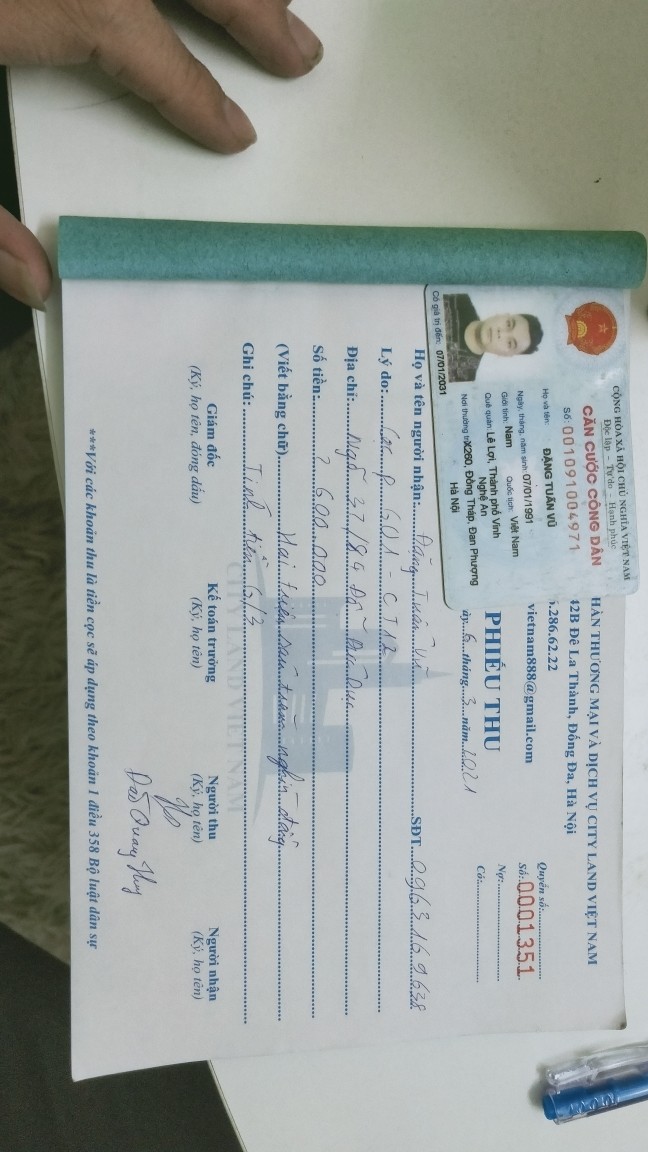 CỘNG HÒA XÃ HỘI CHỦ NGHĨA VIỆT NAM
Độc lập - Tự do - Hạnh phúc
CĂN CƯỚC CÔNG DÂN
Số: 001091004971
Họ và tên: ĐẶNG TUẤN VŨ
Ngày, tháng, năm sinh: 07/01/1991
Giới tính: Nam Quốc tịch: Việt Nam
Quê quán: Lê Lợi, Thành phố Vinh
Nghệ An
Nơi thường trú: X260, Đồng Tháp, Đan Phượng
Hà Nội
Có giá trị đến: 07/01/2031
HẦN THƯƠNG MẠI VÀ DỊCH VỤ CITY LAND VIỆT NAM
42B Đê La Thành, Đống Đa, Hà Nội
.286.62.22
vietnam888@gmail.com
Quyển số:
Số: 0001351
Nợ:
Có:
PHIẾU THU
ày 6 tháng 3 năm 2021
Họ và tên người nhận: Đặng Tuấn Vũ SĐT 0963169638
Lý do: Cọc p 601 - CT12
Địa chỉ: Ngõ 37/84
Số tiền: 2 600.000
(Viết bằng chữ) Hai triệu sáu trăm nghìn đồng
Ghi chú: Tính tiền 6/3
CITY LAND VIET NAM
Giám đốc Kế toán trưởng Người thu Người nhận
(Ký, họ tên, đóng dấu) (Ký, họ tên) (Ký, họ tên) (Ký, họ tên)
Đào Quang Huy
***Với các khoản thu là tiền cọc sẽ áp dụng theo khoản 1 điều 358 Bộ luật dân sự